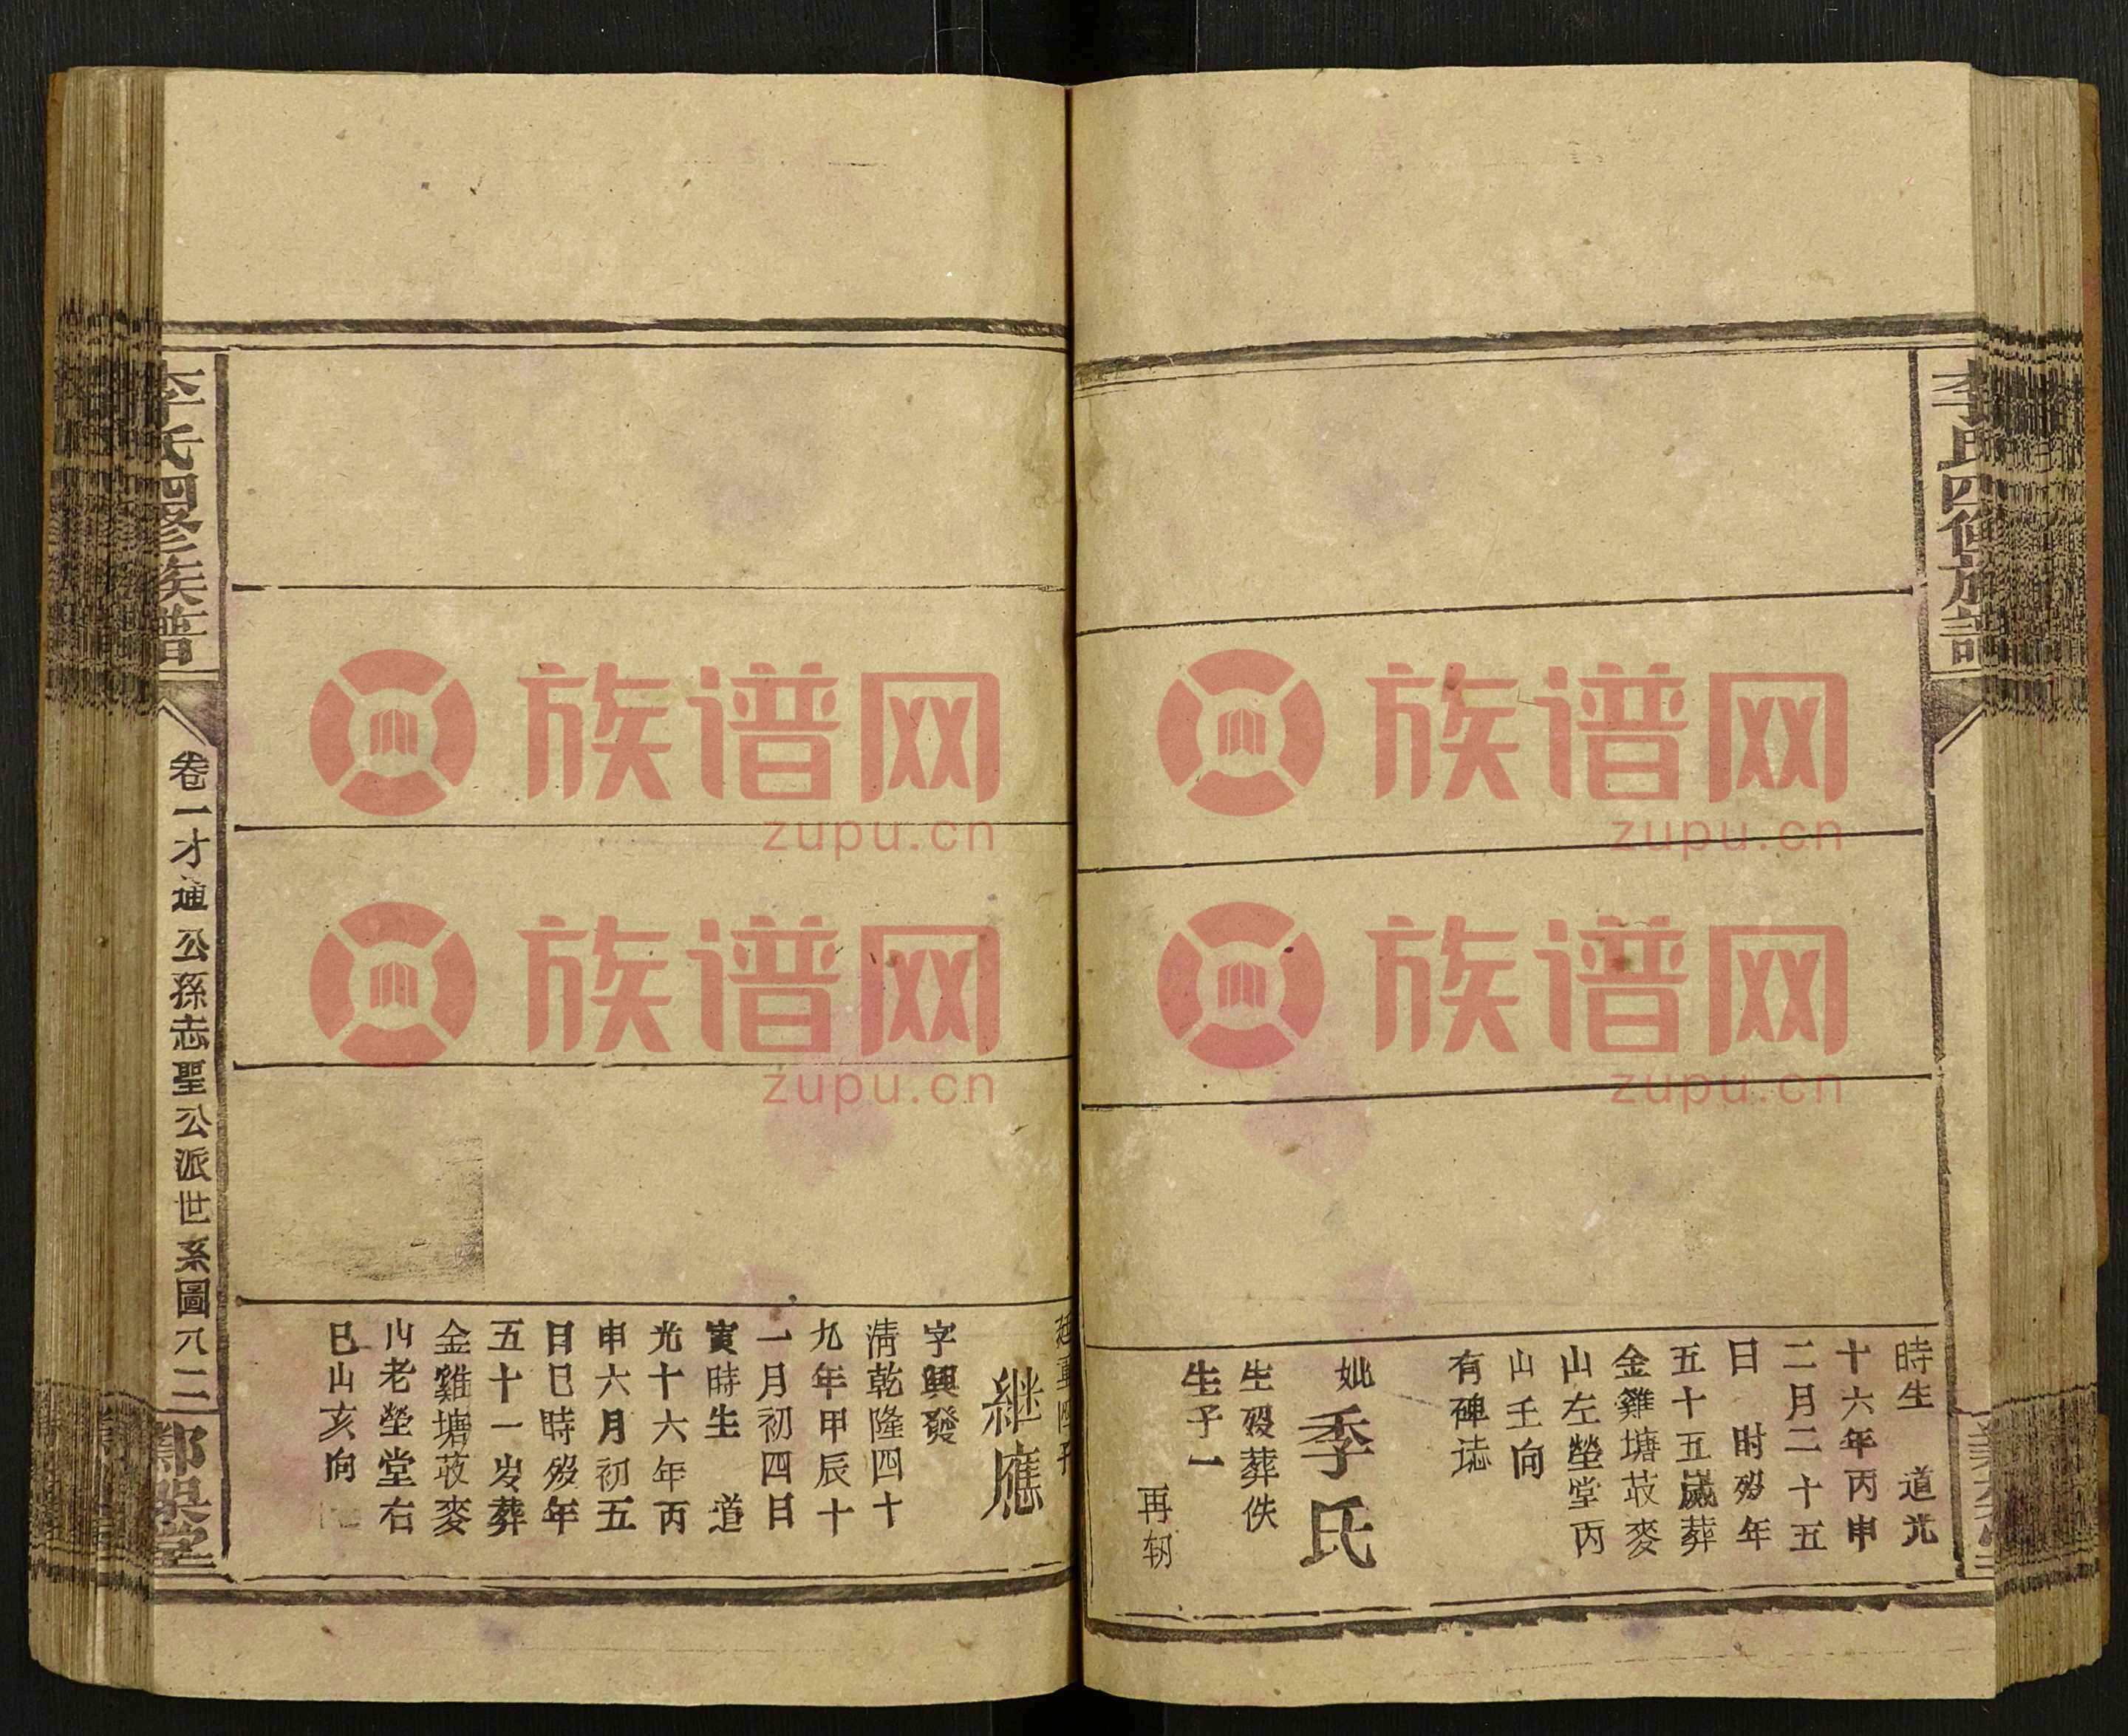 李氏四修族譜
時生　道光
十六年丙申
二月二十五
日　時歿年
五十五歲葬
金雞塘苃麥
山左塋堂丙
山壬向
有碑誌
妣
季氏
生歿葬佚
生子一
再轫
繼應
字興發
清乾隆四十
九年甲辰十
一月初四日
寅時生　道
光十六年丙
申六月初五
日巳時歿年
五十一岁葬
金雞塘苃麥
山老塋堂右
巳山亥向
李氏四修族譜
卷一才通公孫志聖公派世系圖八二
族谱网
zupu.cn
族谱网
zupu.cn
族谱网
zupu.cn
族谱网
zupu.cn